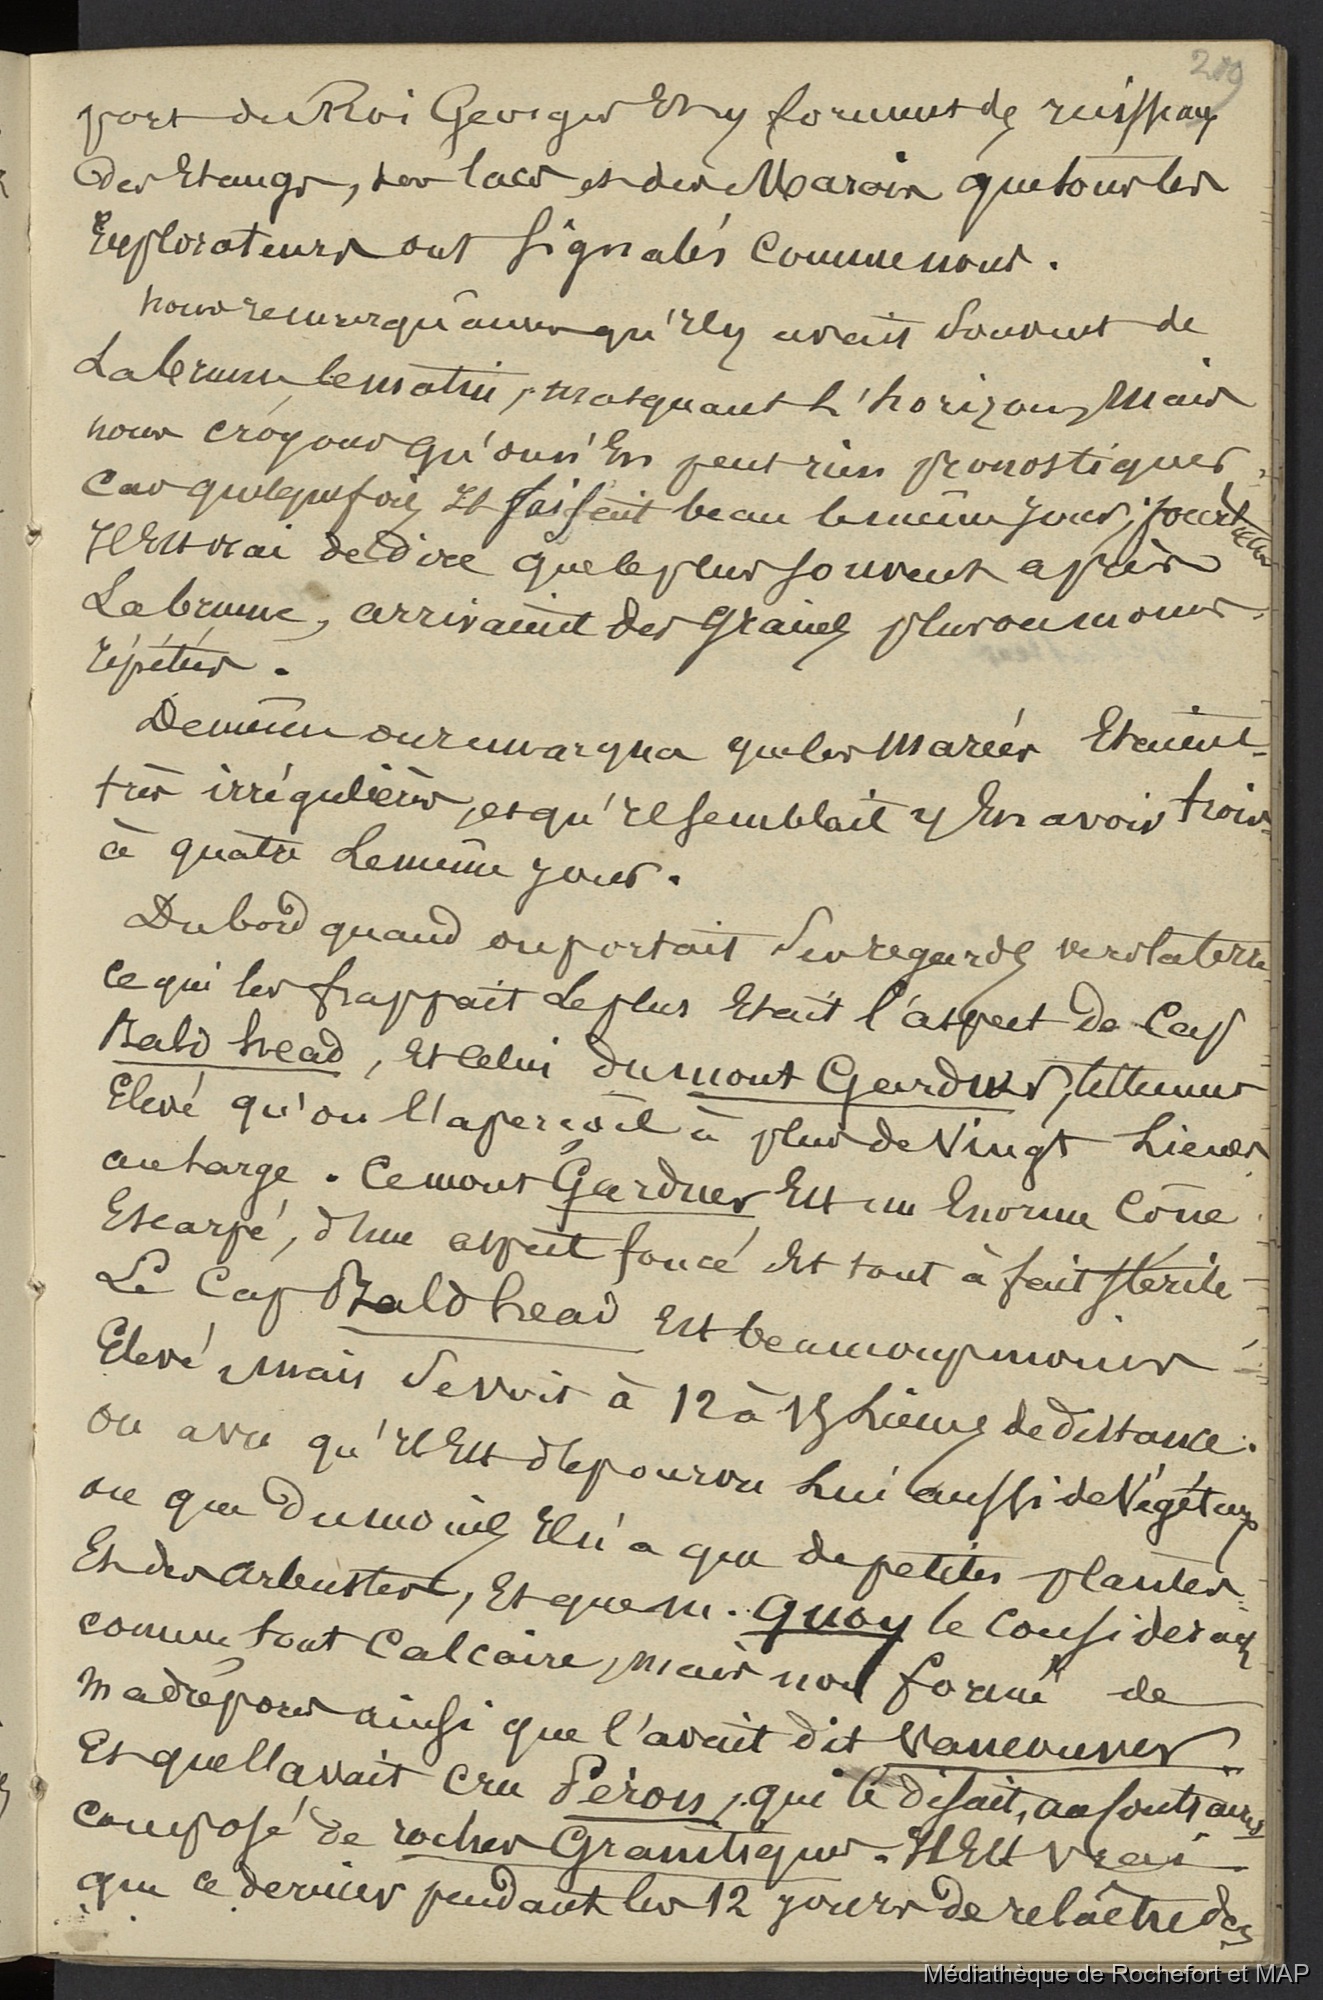 209
port du Roi Georges Et y forment des ruisseaux
Des Etangs, des lacs et des Marais que tous les
Explorateurs ont signalés comme nous.
nous remarquâmes qu'Il y avait souvent de
La brume le matin, masquant L'horizon, Mais
nous croyons qu'on n'En peut rien pronostiquer,
Car quelquefois Il faisait beau le même jour;
Il Est vrai de dire que le plus souvent après
La brume, arrivaient des Grains plus ou moins
répétés.
De même on remarqua que les Marées Etaient
très irrégulières, et qu'Il semblait y En avoir trois
à quatre Le même jour.
Du bord quand on portait ses regards vers la terre
ce qui les frappait Le plus Etait l'aspect de Cap
Bald head, Et Celui du mont Gardner, tellement
Elevé qu'on l'aperçoit à plus de Vingt Lieues
au Large. Ce mont Gardner Est un Enorme Cône
Escarpé, d'une aspect foncé Et tout à fait stérile
Le Cap Bald head Est beaucoup moins
Elevé, mais se voit à 12 à 15 Lieues de distance.
on a vu qu'Il Est dépourvu Lui aussi de Végétaux
ou que du moins Il n'a que de petites plantes
Et des arbustes, Et que M. Quoy le considéra
comme tout Calcaire, mais non formé de
Madrépores ainsi que l'avait dit Vancouver.
Et que l'avait cru Péron, qui le disait, au contraire
composé de roches Granitiques. Il Est vrai
que ce dernier pendant les 12 jours de relâche des
Médiathèque de Rochefort et MAP